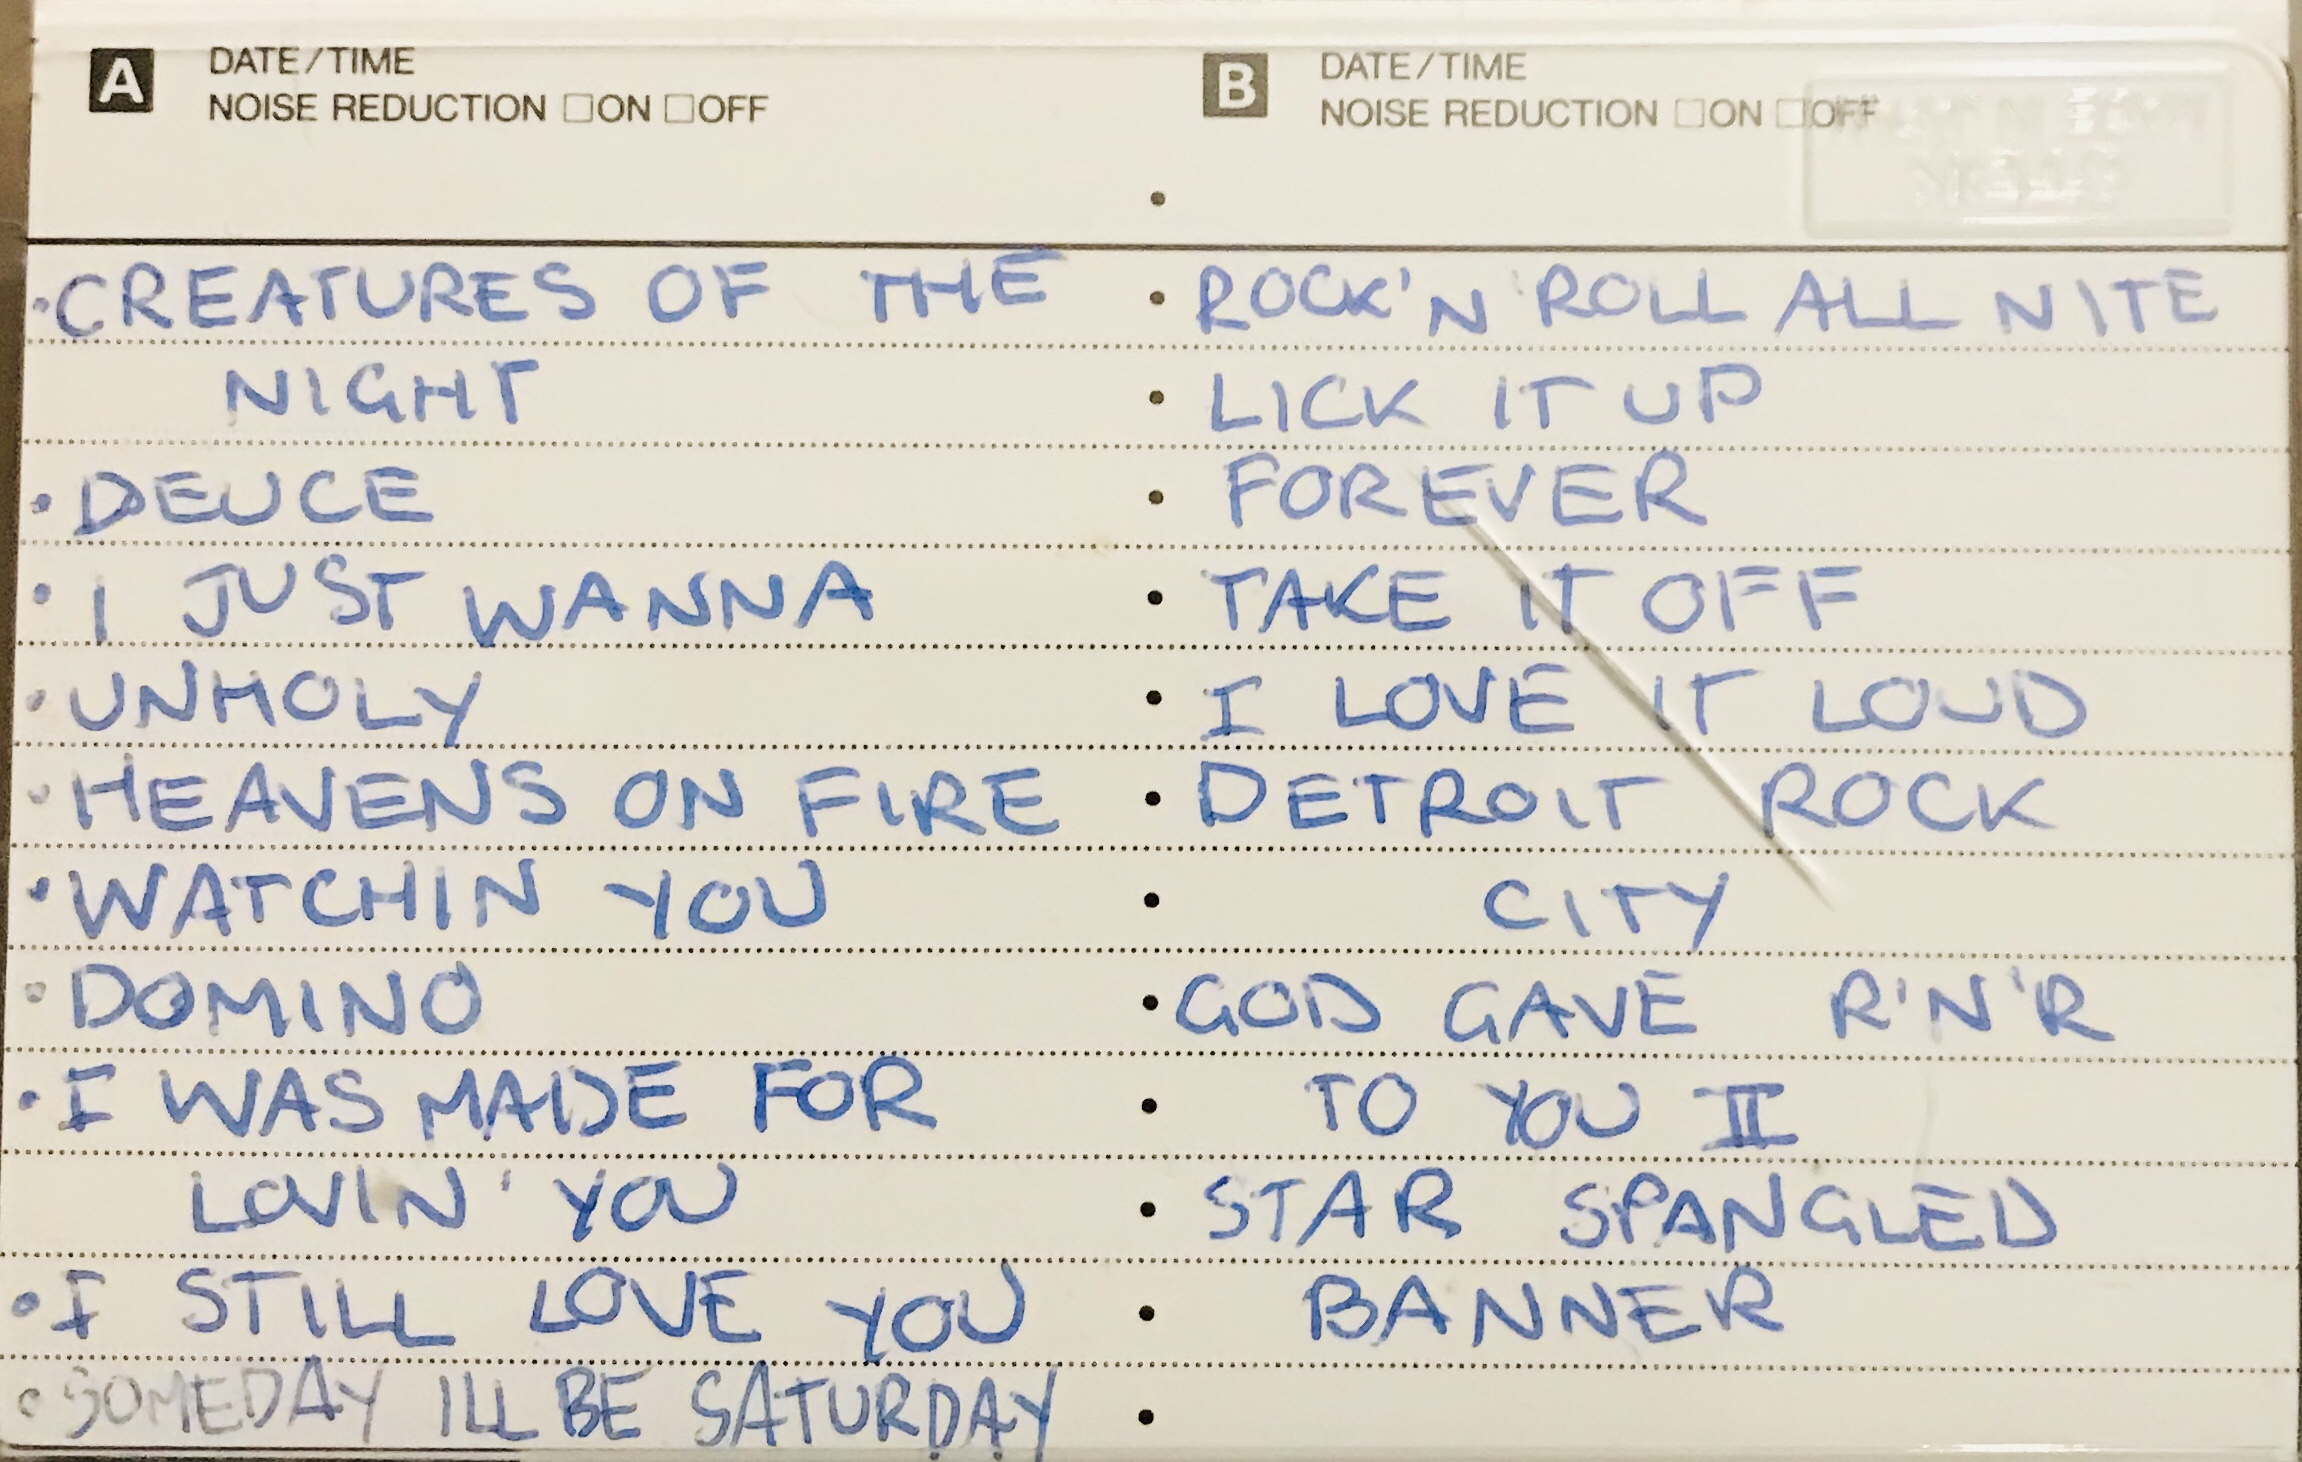 A DATE/TIME
NOISE REDUCTION □ON □OFF
•CREATURES OF THE
NIGHT
•DEUCE
•I JUST WANNA
•UNHOLY
•HEAVENS ON FIRE
•WATCHIN YOU
•DOMINO
•I WAS MADE FOR
LOVIN' YOU
•I STILL LOVE YOU
•SOMEDAY ILL BE SATURDAY
B DATE/TIME
NOISE REDUCTION □ON □OFF
•
•ROCK'N'ROLL ALL NITE
•LICK IT UP
•FOREVER
•TAKE IT OFF
•I LOVE IT LOUD
•DETROIT ROCK
•CITY
•GOD GAVE R'N'R
•TO YOU II
•STAR SPANGLED
•BANNER
•